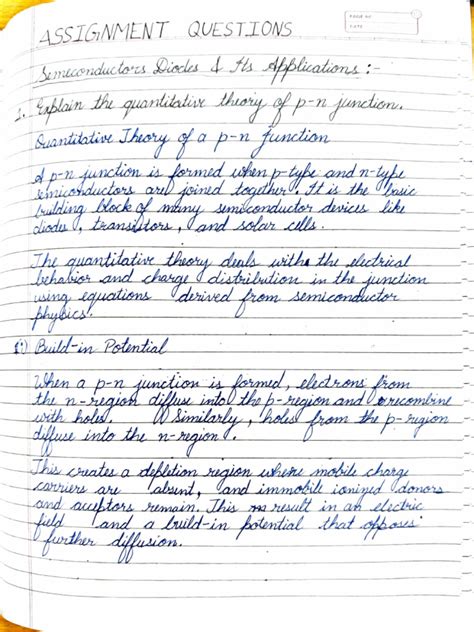 ASSIGNMENT QUESTIONS
PAGE NO
DATE
Semeconductors Diodes & Its Applications :-
1. Explain the quantitative theory of p-n junction.
Quantitative Theory of a p-n Junction
A p-n junction is formed when p-type and n-type
semiconductors are joined together. It is the basic
building block of many semiconductor devices like
diodes, transistors, and solar cells.
The quantitative theory deals withs the electrical
behavior and charge distribution in the junction
using equations derived from semiconductor
physics.
Build-in Potential
When a p-n junction is formed, electrons from
the n-region diffuse into the p-region and recombine
with holes. Similarly, holes from the p-region
diffuse into the n-region.
This creates a depletion region where mobile charge
carriers are absent, and immobile ionized donors
and acceptors remain. This result in an electric
field and a build-in potential that opposes
further diffusion.